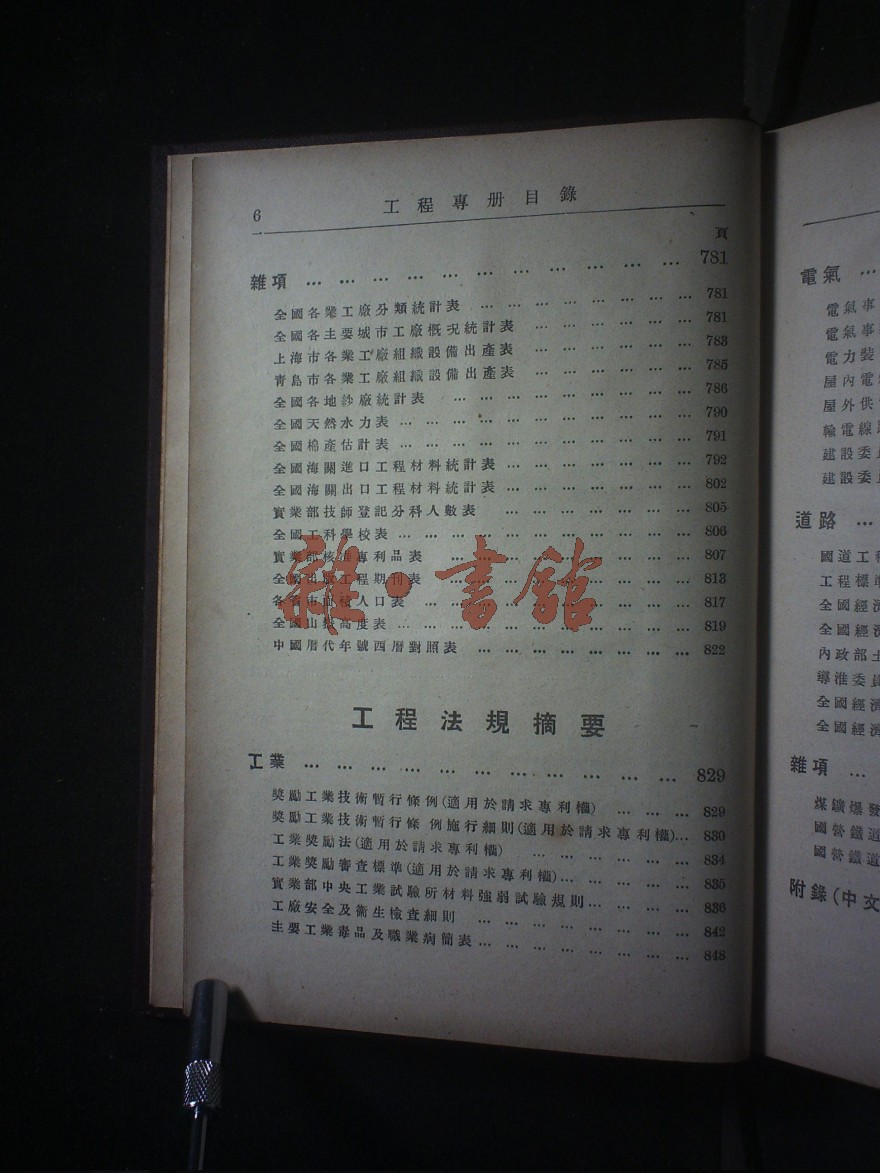 6 工程專册目錄
頁
雜項 … … … … … … … … … … … … 781
全國各業工廠分類統計表 … … … … … … … … 781
全國各主要城市工廠概況統計表 … … … … … … 781
上海市各業工廠組織設備出產表 … … … … … … 783
青島市各業工廠組織設備出產表 … … … … … … 785
全國各地紗廠統計表 … … … … … … … … … 786
全國天然水力表 … … … … … … … … … … … 790
全國棉產估計表 … … … … … … … … … … … 791
全國海關進口工程材料統計表 … … … … … … … 792
全國海關出口工程材料統計表 … … … … … … … 802
實業部技師登記分科人數表 … … … … … … … 805
全國工科學校表 … … … … … … … … … … … 806
實業部核准專利品表 … … … … … … … … … 807
全國出版工程期刊表 … … … … … … … … … 813
各省市面積人口表 … … … … … … … … … … 817
全國山嶽高度表 … … … … … … … … … … … 819
中國曆代年號西曆對照表 … … … … … … … … 822
工程法規摘要
工業 … … … … … … … … … … … … 829
獎勵工業技術暫行條例(適用於請求專利權) … … … 829
獎勵工業技術暫行條例施行細則(適用於請求專利權)… 830
工業獎勵法(適用於請求專利權) … … … … … … 834
工業獎勵審查標準(適用於請求專利權)… … … … … 835
實業部中央工業試驗所材料強弱試驗規則… … … … 836
工廠安全及衞生檢查細則 … … … … … … … … 842
主要工業毒品及職業病簡表… … … … … … … … 848
雜·書館
電氣 …
電氣事
電氣事
電力裝
屋內電
屋外供
輸電線
建設委
建設委
道路 …
國道工程
工程標準
全國經濟
全國經濟
內政部土
導淮委員
全國經濟
全國經濟
雜項 …
煤鑛爆發
國營鐵道
國營鐵道
附錄(中文